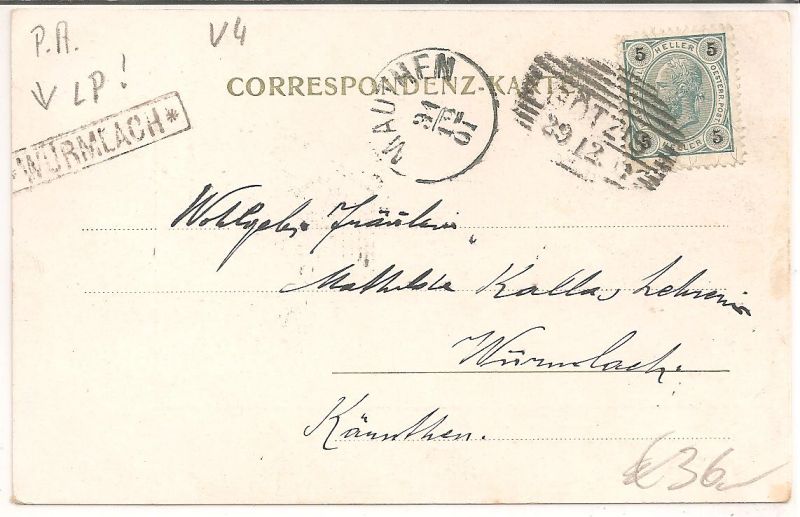 P.A.
V4
↓ LP!
*WÜRMLACH*
CORRESPONDENZ-KARTE
MAUTHEN
31
12
01
GÖTZIS
29 12 01
5 HELLER 5
OESTERR. POST
5 HELLER 5
Wohlgeb. Fräulein
Mathilde Kallas Lehrerin
Würmlach.
Kärnthen.
€ 36,-